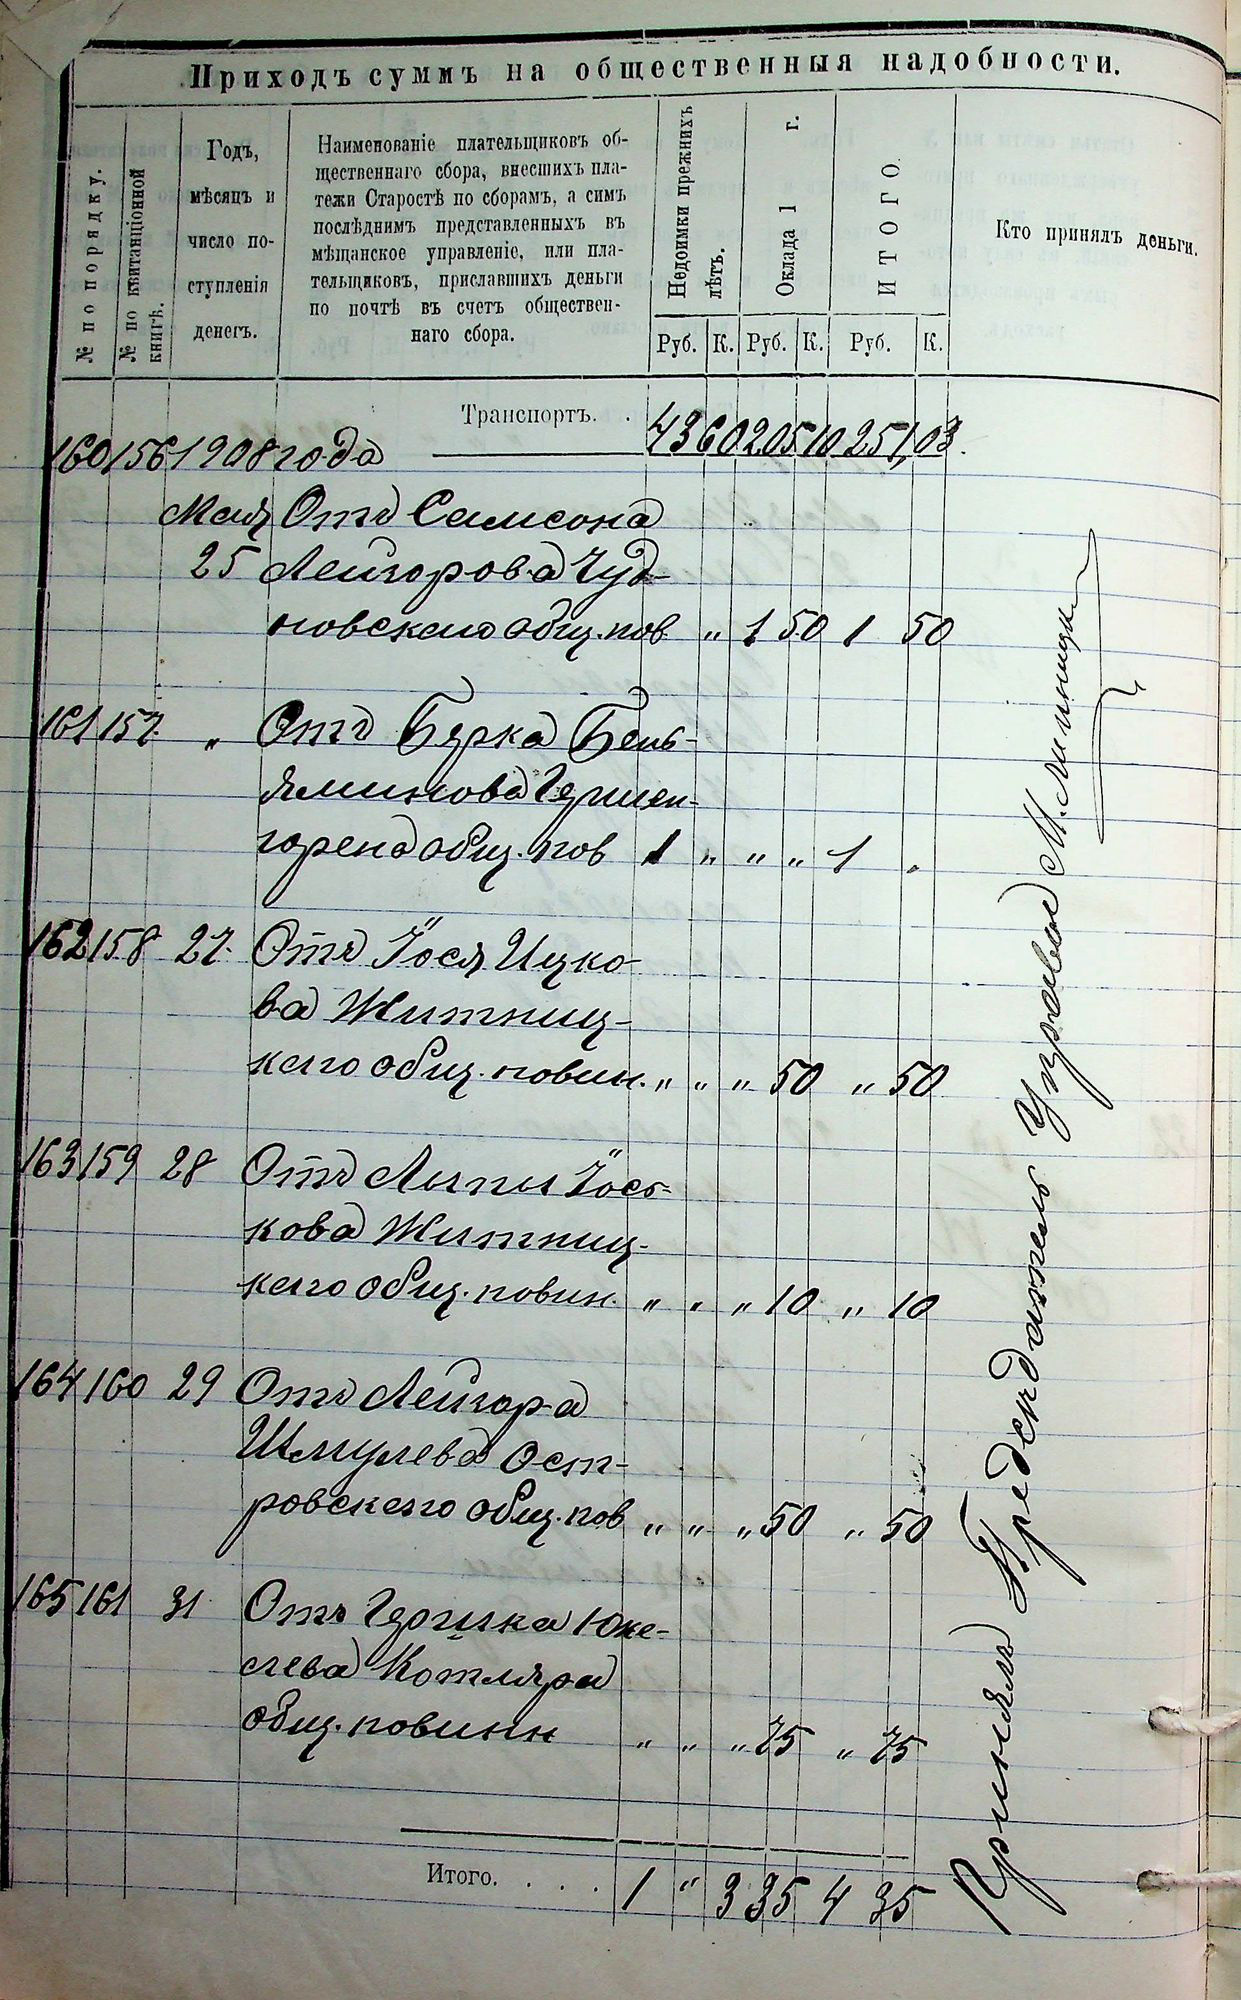 Приходъ суммъ на общественныя надобности.
№ по порядку.
№ по квитанціонной
книгѣ.
Годъ,
мѣсяцъ и
число по-
ступленія
денегъ.
Наименованіе плательщиковъ об-
щественнаго сбора, внесшихъ пла-
тежи Старостѣ по сборамъ, а симъ
послѣднимъ представленныхъ въ
мѣщанское управленіе, или пла-
тельщиковъ, приславшихъ деньги
по почтѣ въ счетъ обществен-
наго сбора.
Недоимки прежнихъ
лѣтъ.
Оклада 1 г.
ИТОГО.
Кто принялъ деньги.
Руб. К. Руб. К. Руб. К.
Транспортъ. . 43 60 205 10 251,03.
160 156 1908 года
Мая Отъ Самсона
25 Лейзорова Чуд-
новскаго общ. пов. " 1 50 1 50
161 157. " Отъ Берка Бень-
яминова Гершен-
горена общ. пов 1 " " " 1 "
162 158 27. Отъ Іося Ицко-
ва Житниц-
каго общ. повин. " " " 50 " 50
163 159 28 Отъ Лыпы Іось-
кова Житниц-
каго общ. повин. " " " 10 " 10
164 160 29 Отъ Лейзора
Шмулева Ост-
ровскаго общ. пов " " " 50 " 50
165 161 31 Отъ Гершка Юке-
лева Котляра
общ. повинн " " " 75 " 75
Итого. . . . 1 " 3 35 4 35
Принялъ Предсѣдатель Управы М.